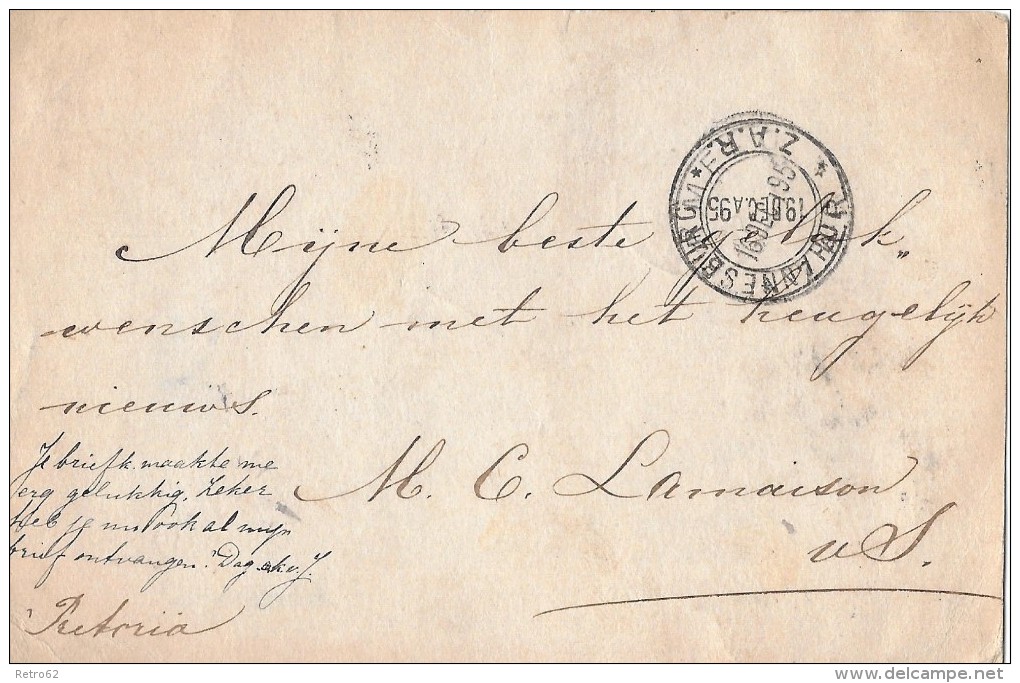 Mijne beste geluk„
wenschen met het heugelijk
nieuws.
M. C. Lamaison
v S.
Je briefk. maakte me
erg gelukkig. Zeker
heb je nu ook al mijn
brief ontvangen? Dag
Pretoria
JOHANNESBURG
Z.A.R.
19 DEC. A 95
Retro62
delcampe.net